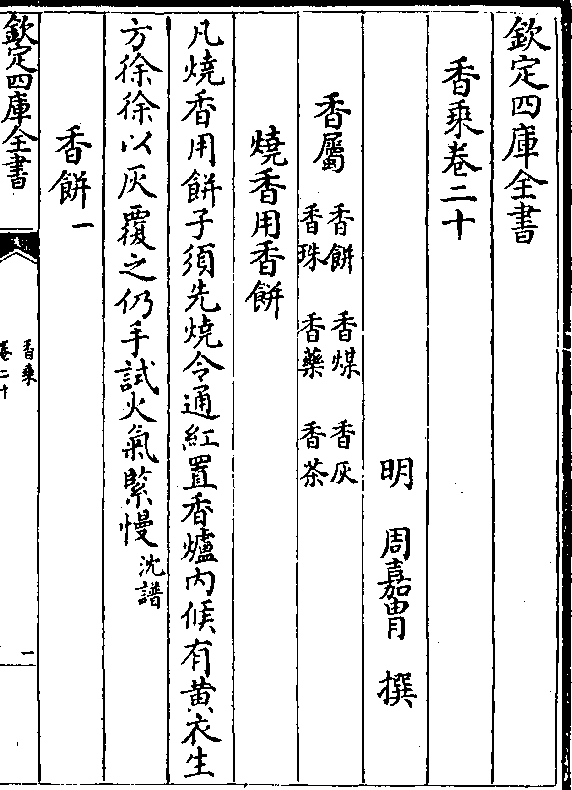 欽定四庫全書
香乘卷二十
明 周嘉胄 撰
香屬 香餅 香煤 香灰
香珠 香藥 香茶
燒香用香餅
凡燒香用餅子須先燒令通紅置香爐內候有黄衣生
方徐徐以灰覆之仍手試火氣緊慢沈譜
香餅一
欽定四庫全書
香乘
卷二十
一